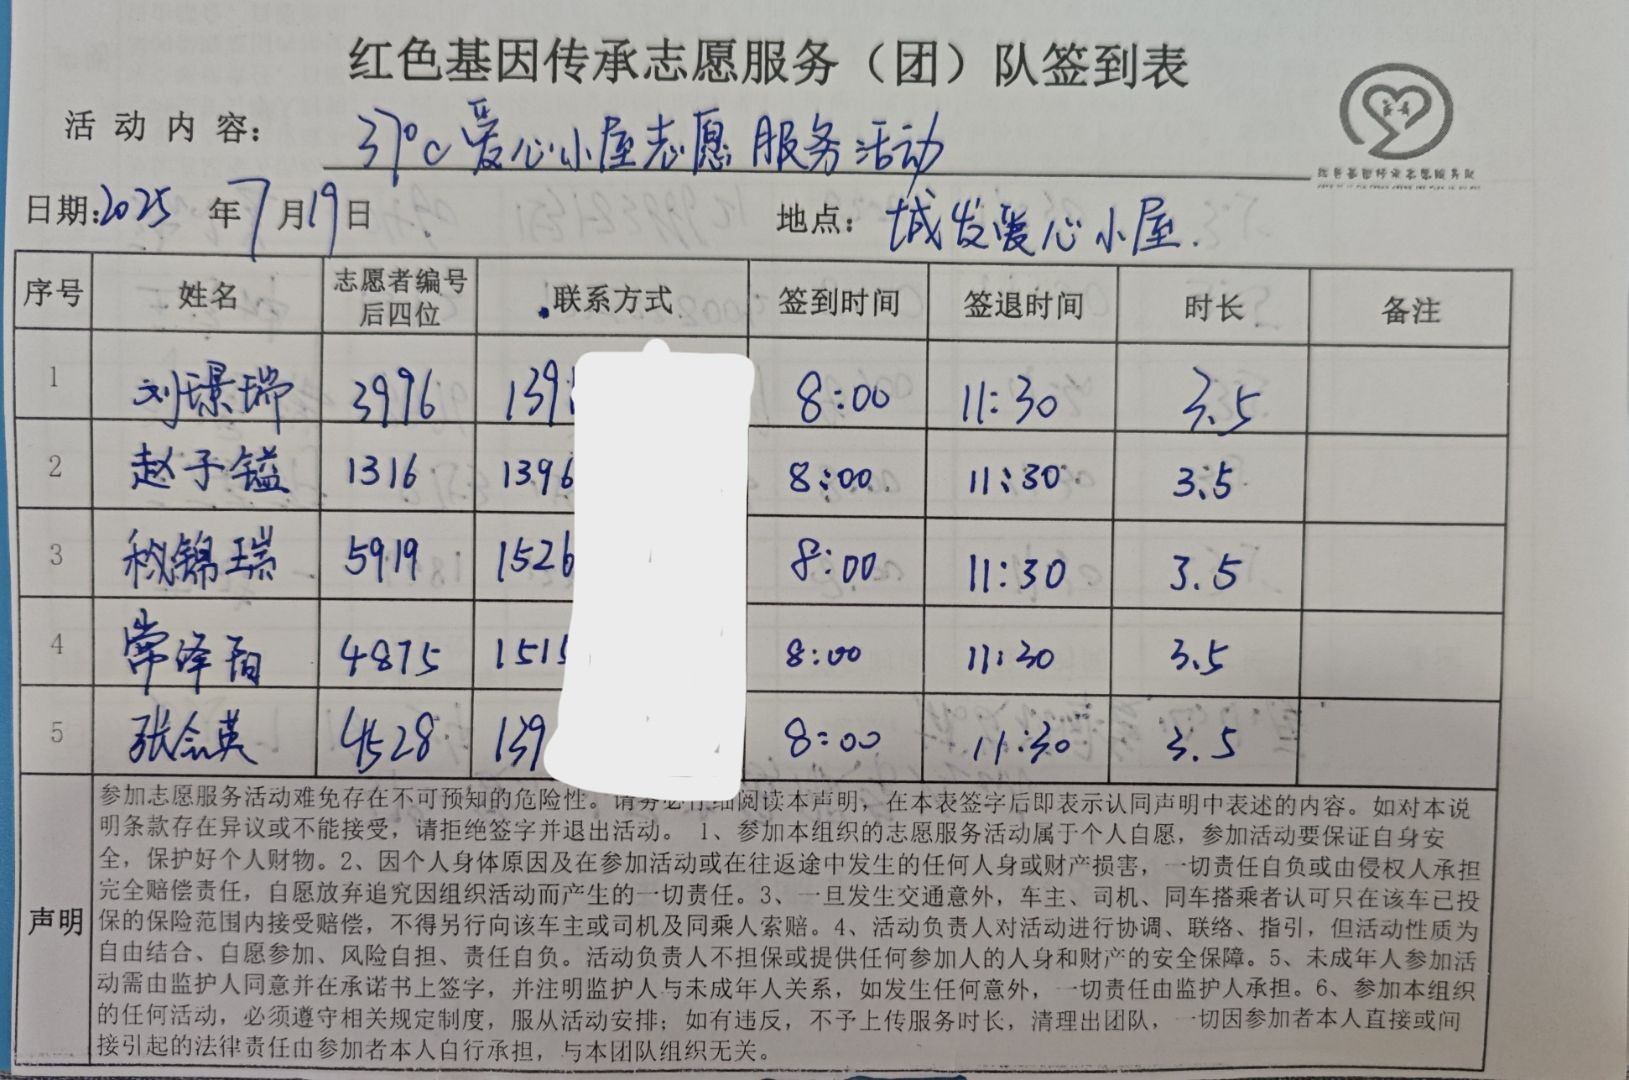 红色基因传承志愿服务（团）队签到表
活动内容: 37°C爱心小屋志愿服务活动
红色基因传承志愿服务队
日期:2025年7月19日 地点: 城发爱心小屋.
序号 姓名 志愿者编号后四位 联系方式 签到时间 签退时间 时长 备注
1 刘璟瑞 3996 139 8:00 11:30 3.5
2 赵子镒 1316 1396 8:00 11:30 3.5
3 秘锦瑞 5919 1526 8:00 11:30 3.5
4 常泽 4875 1515 8:00 11:30 3.5
5 张念英 4528 139 8:00 11:30 3.5
声明
参加志愿服务活动难免存在不可预知的危险性。请务必仔细阅读本声明，在本表签字后即表示认同声明中表述的内容。如对本说
明条款存在异议或不能接受，请拒绝签字并退出活动。 1、参加本组织的志愿服务活动属于个人自愿，参加活动要保证自身安
全，保护好个人财物。2、因个人身体原因及在参加活动或在往返途中发生的任何人身或财产损害，一切责任自负或由侵权人承担
完全赔偿责任，自愿放弃追究因组织活动而产生的一切责任。3、一旦发生交通意外，车主、司机、同车搭乘者认可只在该车已投
保的保险范围内接受赔偿，不得另行向该车主或司机及同乘人索赔。4、活动负责人对活动进行协调、联络、指引，但活动性质为
自由结合、自愿参加、风险自担、责任自负。活动负责人不担保或提供任何参加人的人身和财产的安全保障。5、未成年人参加活
动需由监护人同意并在承诺书上签字，并注明监护人与未成年人关系，如发生任何意外，一切责任由监护人承担。6、参加本组织
的任何活动，必须遵守相关规定制度，服从活动安排；如有违反，不予上传服务时长，清理出团队，一切因参加者本人直接或间
接引起的法律责任由参加者本人自行承担，与本团队组织无关。